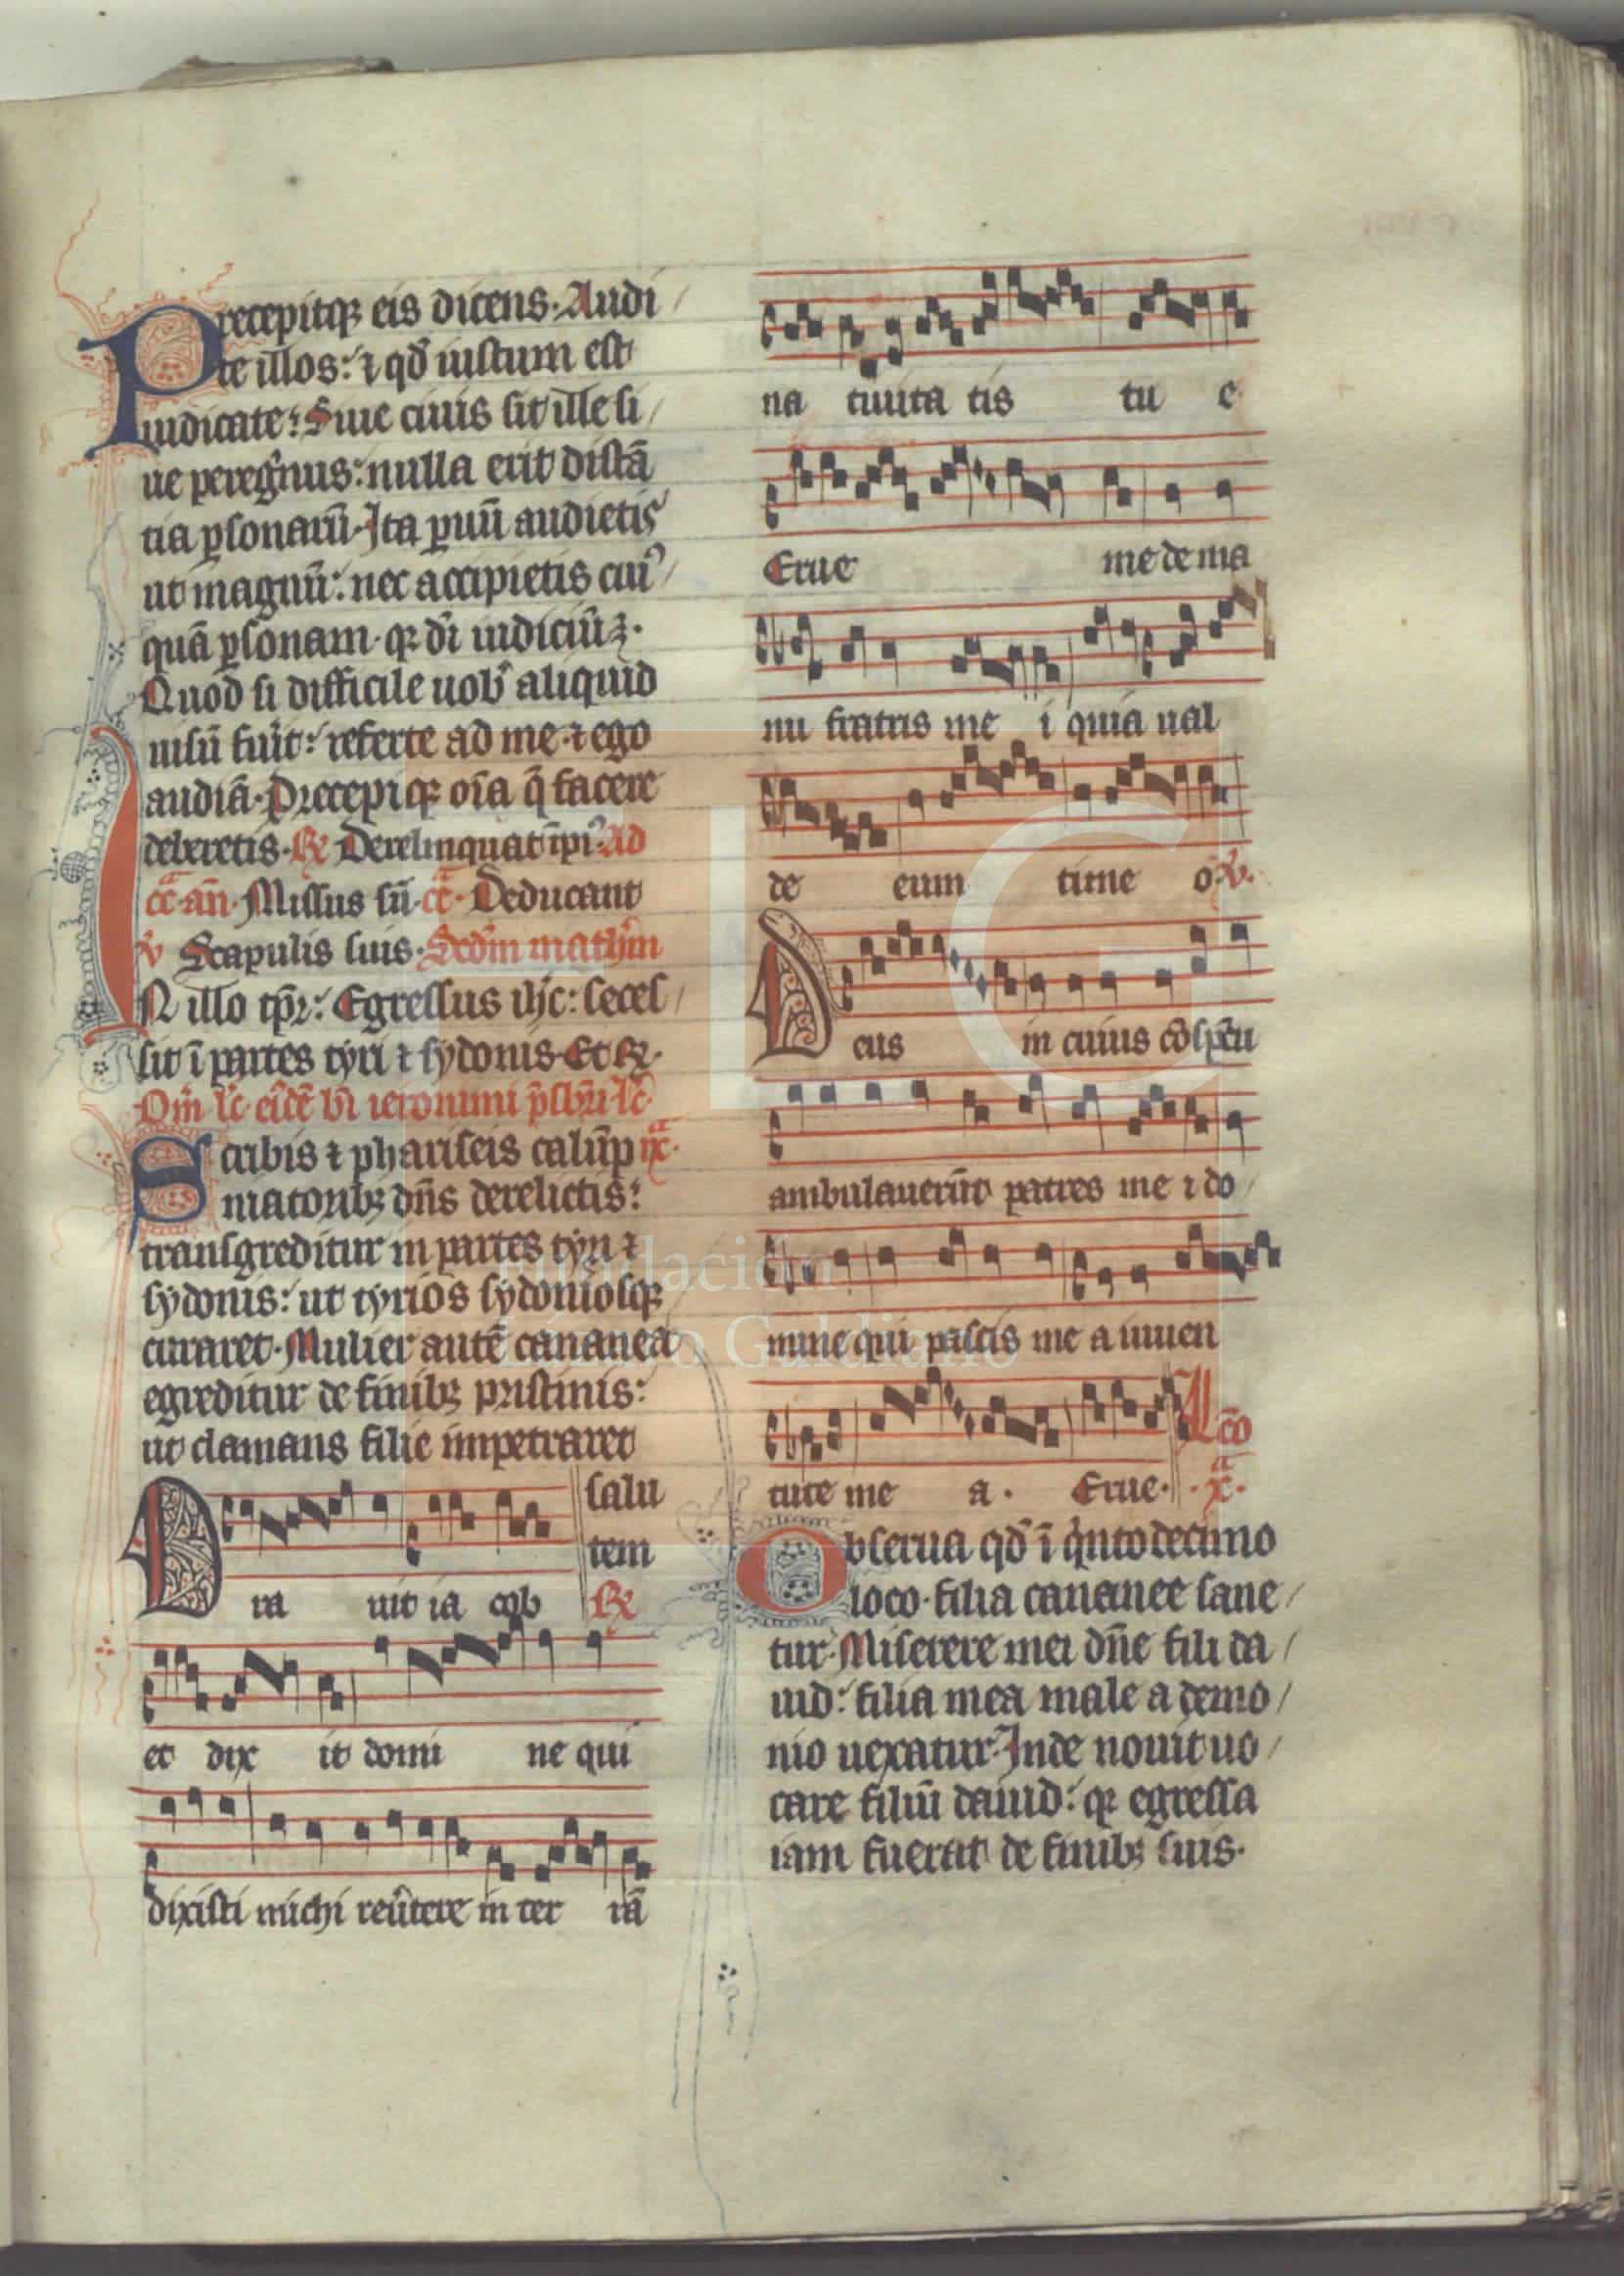 Precepitqꝫ eis dicens. Audi
te illos: ⁊ qđ iustum est
iudicate: Siue ciuis sit ille si
ue peregͥnus: nulla erit distā
tia ꝑsonarū. Ita ꝑuū audietis
ut magnū: nec accipietis cuiꝰ
quā ꝑsonam. qꝛ dī iudiciū ē.
Quod si difficile uob̾ aliquid
uisū fu̾it: referte ad me. ⁊ ego
audiā. Precepi qꝫ oīa q̄ facere
deberetis. ℟ Derelinquat īpiꝰ. Ad
cc̄ᵃ. an̄. Missus sū. cc̄ᵃ. Deducant
℣ Scapulis suis. Scd̄m mathm̄
IN illo tꝑ̄r: Egressus ih̄c: seces
sit ī partes tyri ⁊ sydonis. Et ℟.
Om̄ l̄c. eiusdē b̄i ieronimi p̄sb̄ri. l̄c
Scribis ⁊ phariseis calūp ixᵃ.
niatoribꝫ dn̄s derelictis:
transgreditur in partes tyri ⁊
sydonis: ut tyrios sydoniosqꝫ
curaret. Mulier autē cananea
egreditur de finibꝫ pristinis:
ut clamans filie impetraret
salu
tem
Ora uit ia cob ℟
et dix it domi ne qui
dixisti michi reu̾tere in ter rā
na tiuita tis tu e
Erue me de ma
nu fratris me i quia ual
de eum time o. ℣.
Deus in cuius cōspc̄u
ambulauerūt patres me i do
mine qui pascis me a iuuen
tute me a. Erue. xᵃ.
Obserua qđ ī qͥnto decimo
loco. filia cananee sane
tur. Miserere mei dn̄e fili da
uid: filia mea male a demo
nio uexatur. Inde nouit uo
care filiū dauid: qꝛ egressa
iam fuerat de finibꝫ suis.
Fundación
Lázaro Galdiano